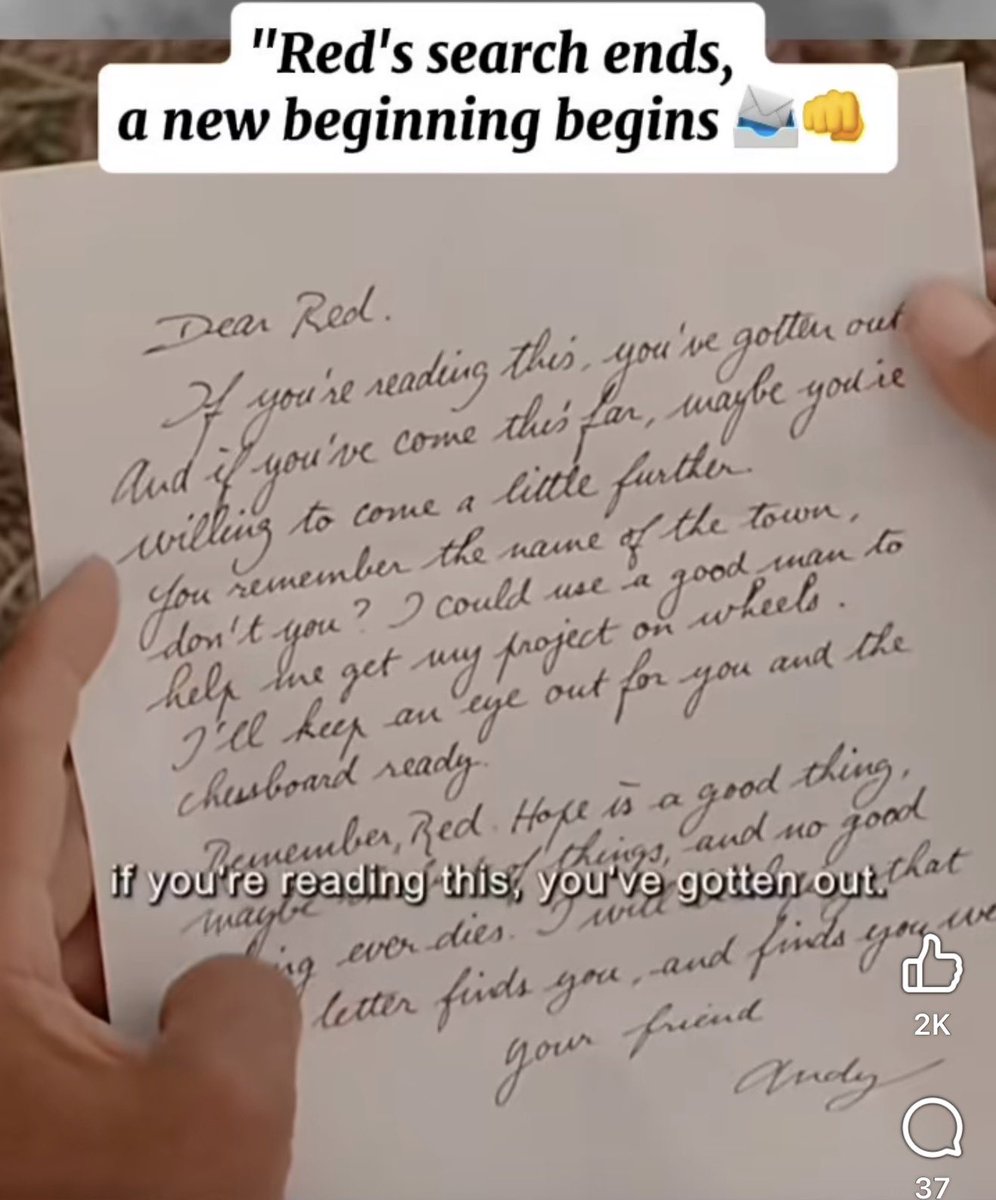 "Red's search ends,
a new beginning begins 📨👊
Dear Red.
If you're reading this, you've gotten out
And if you've come this far, maybe you're
willing to come a little further.
You remember the name of the town,
don't you? I could use a good man to
help me get my project on wheels.
I'll keep an eye out for you and the
chessboard ready.
Remember, Red. Hope is a good thing,
maybe things, and no good
ever dies. I will that
letter finds you, and finds you
your friend
Andy
if you're reading this, you've gotten out.
2K
37